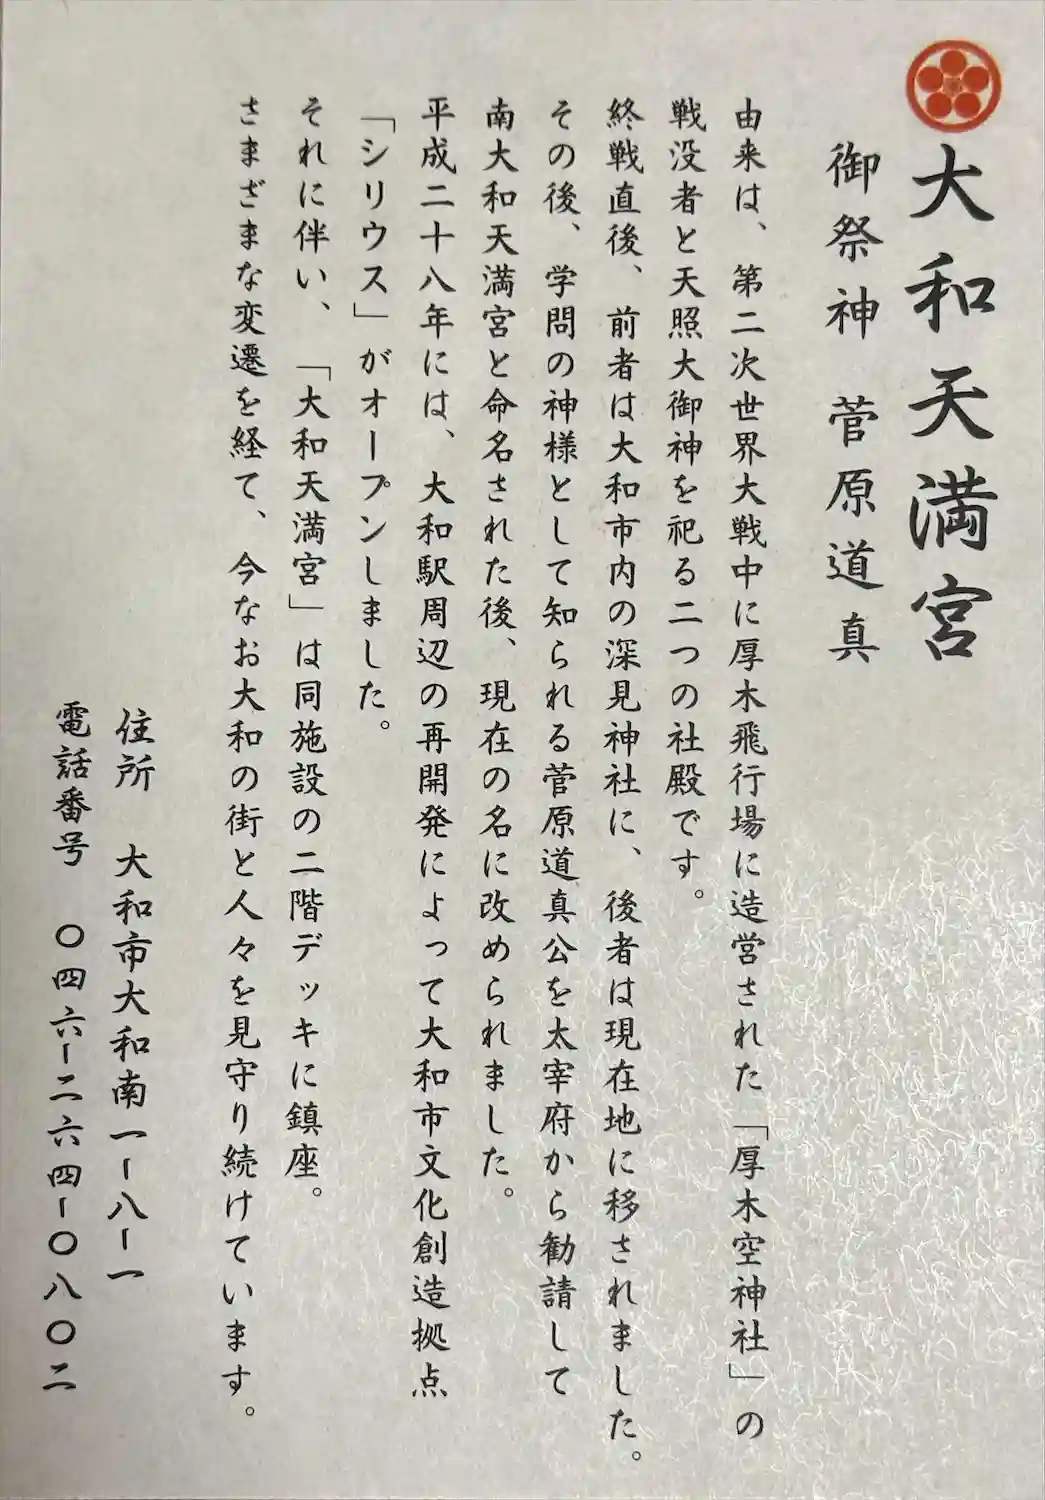 大和天満宮
御祭神 菅原道真
由来は、第二次世界大戦中に厚木飛行場に造営された「厚木空神社」の
戦没者と天照大御神を祀る二つの社殿です。
終戦直後、前者は大和市内の深見神社に、後者は現在地に移されました。
その後、学問の神様として知られる菅原道真公を太宰府から勧請して
南大和天満宮と命名された後、現在の名に改められました。
平成二十八年には、大和駅周辺の再開発によって大和市文化創造拠点
「シリウス」がオープンしました。
それに伴い、「大和天満宮」は同施設の二階デッキに鎮座。
さまざまな変遷を経て、今なお大和の街と人々を見守り続けています。
住所 大和市大和南一ー八ー一
電話番号 〇四六ー二六四ー〇八〇二